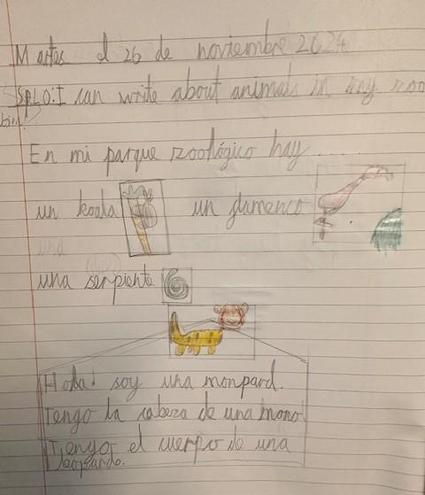 Martes el 26 de noviembre 2024
SpLO: I can write about animals in my zoo
En mi parque zoológico hay ...
un koala un flamenco
una serpiente
Hola! soy una monpard.
Tengo la cabeza de una mono
Tengo el cuerpo de una
leopardo.